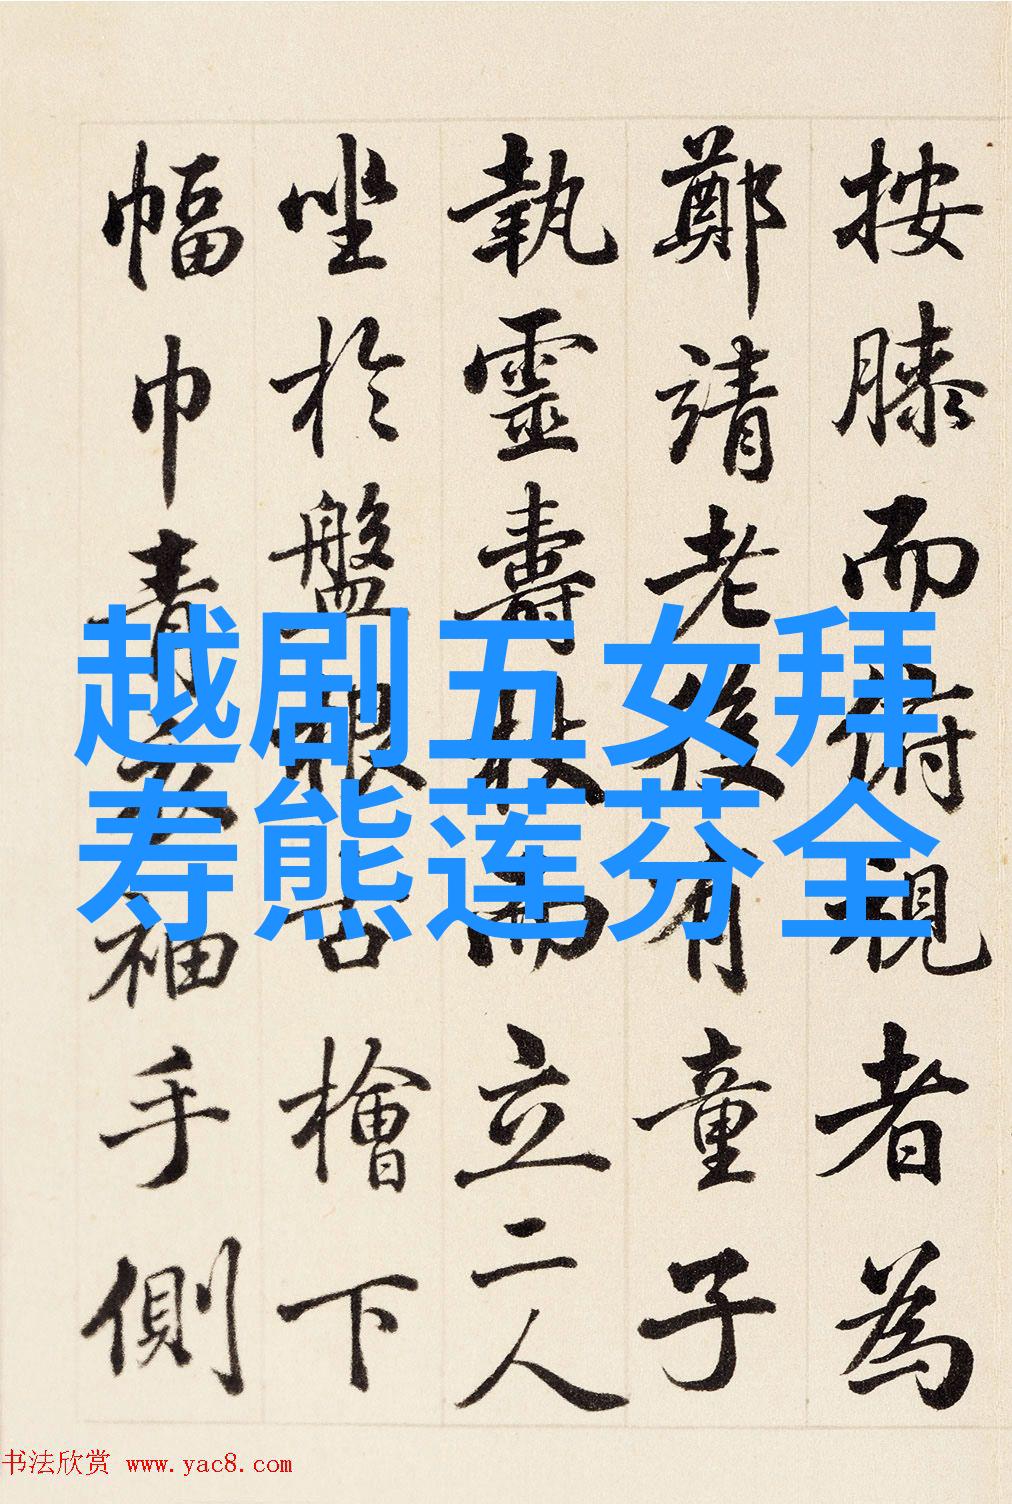 按膝而俯視者為
鄭靖老後有童子
執靈壽杖而立二人
坐於盤根古檜下
幅巾青衣袖手側
越剧五女拜
寿熊莲芬全
书法欣赏 www.yac8.com